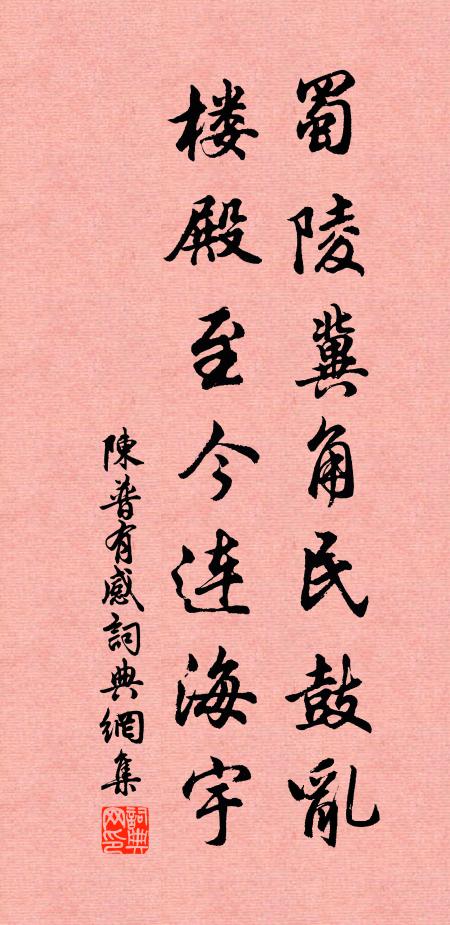 蜀陵冀角民鼓亂
楼殿至今连海宇
陳普有感詞典網集
詞典网印